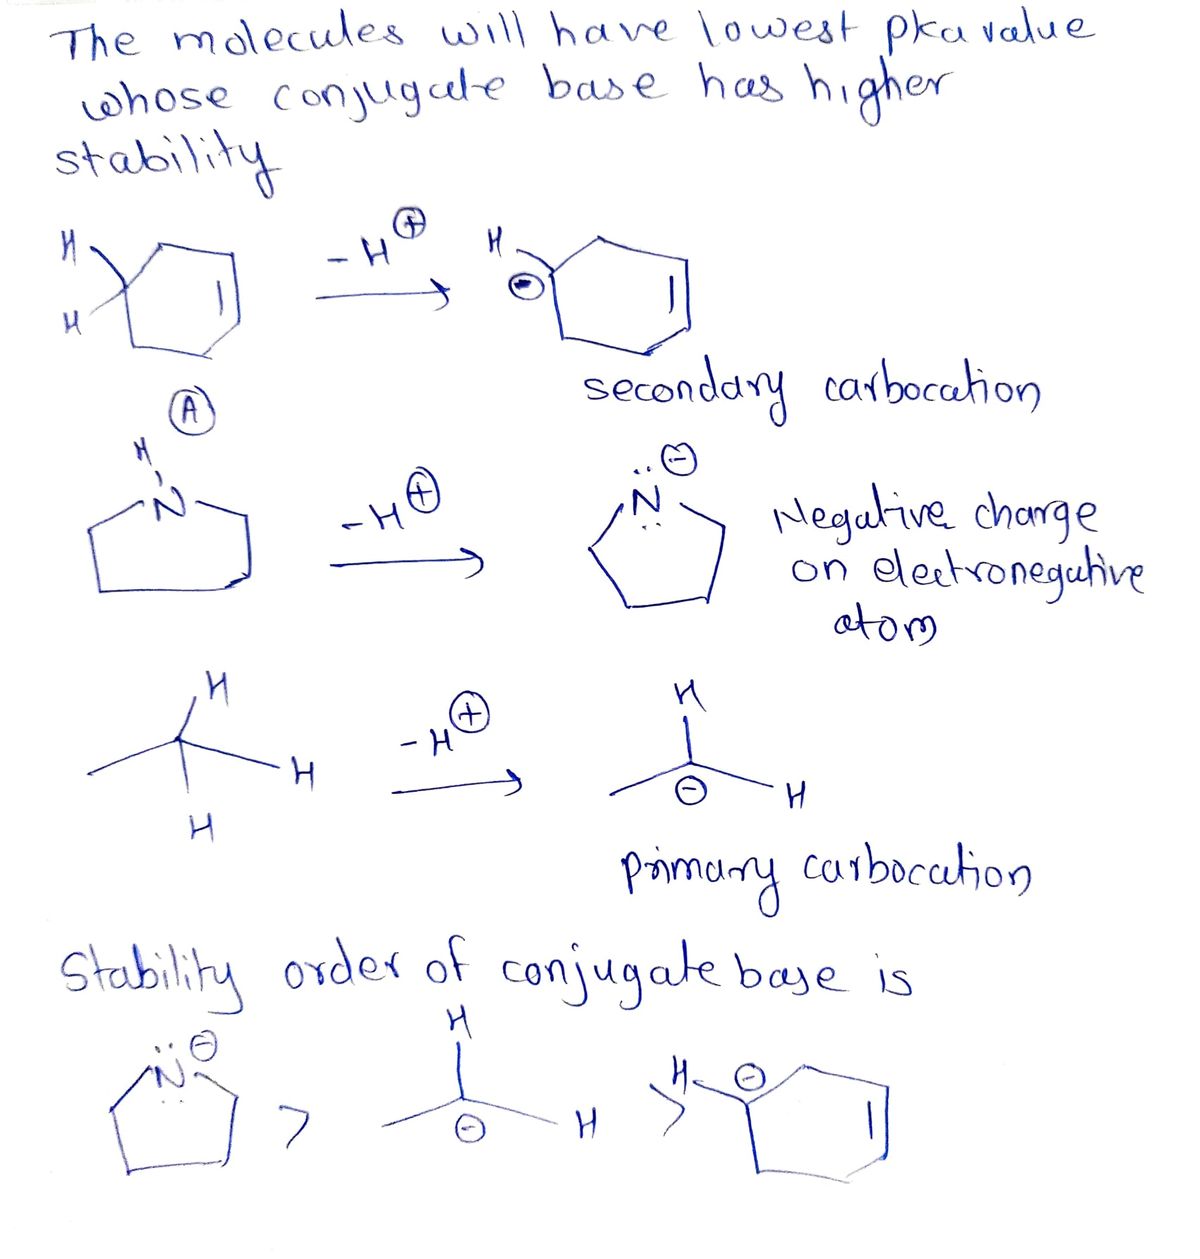 The molecules will have lowest pka value
whose conjugate base has higher
stability
H
H
-H⊕
H
⊖
secondary carbocation
A
H
N
-H⊕
..⊖
N
..
Negative charge
on electronegative
atom
H
H
H
-H⊕
H
⊖
H
primary carbocation
Stability order of conjugate base is
..⊖
N
..
>
H
⊖
H
>
H
⊖